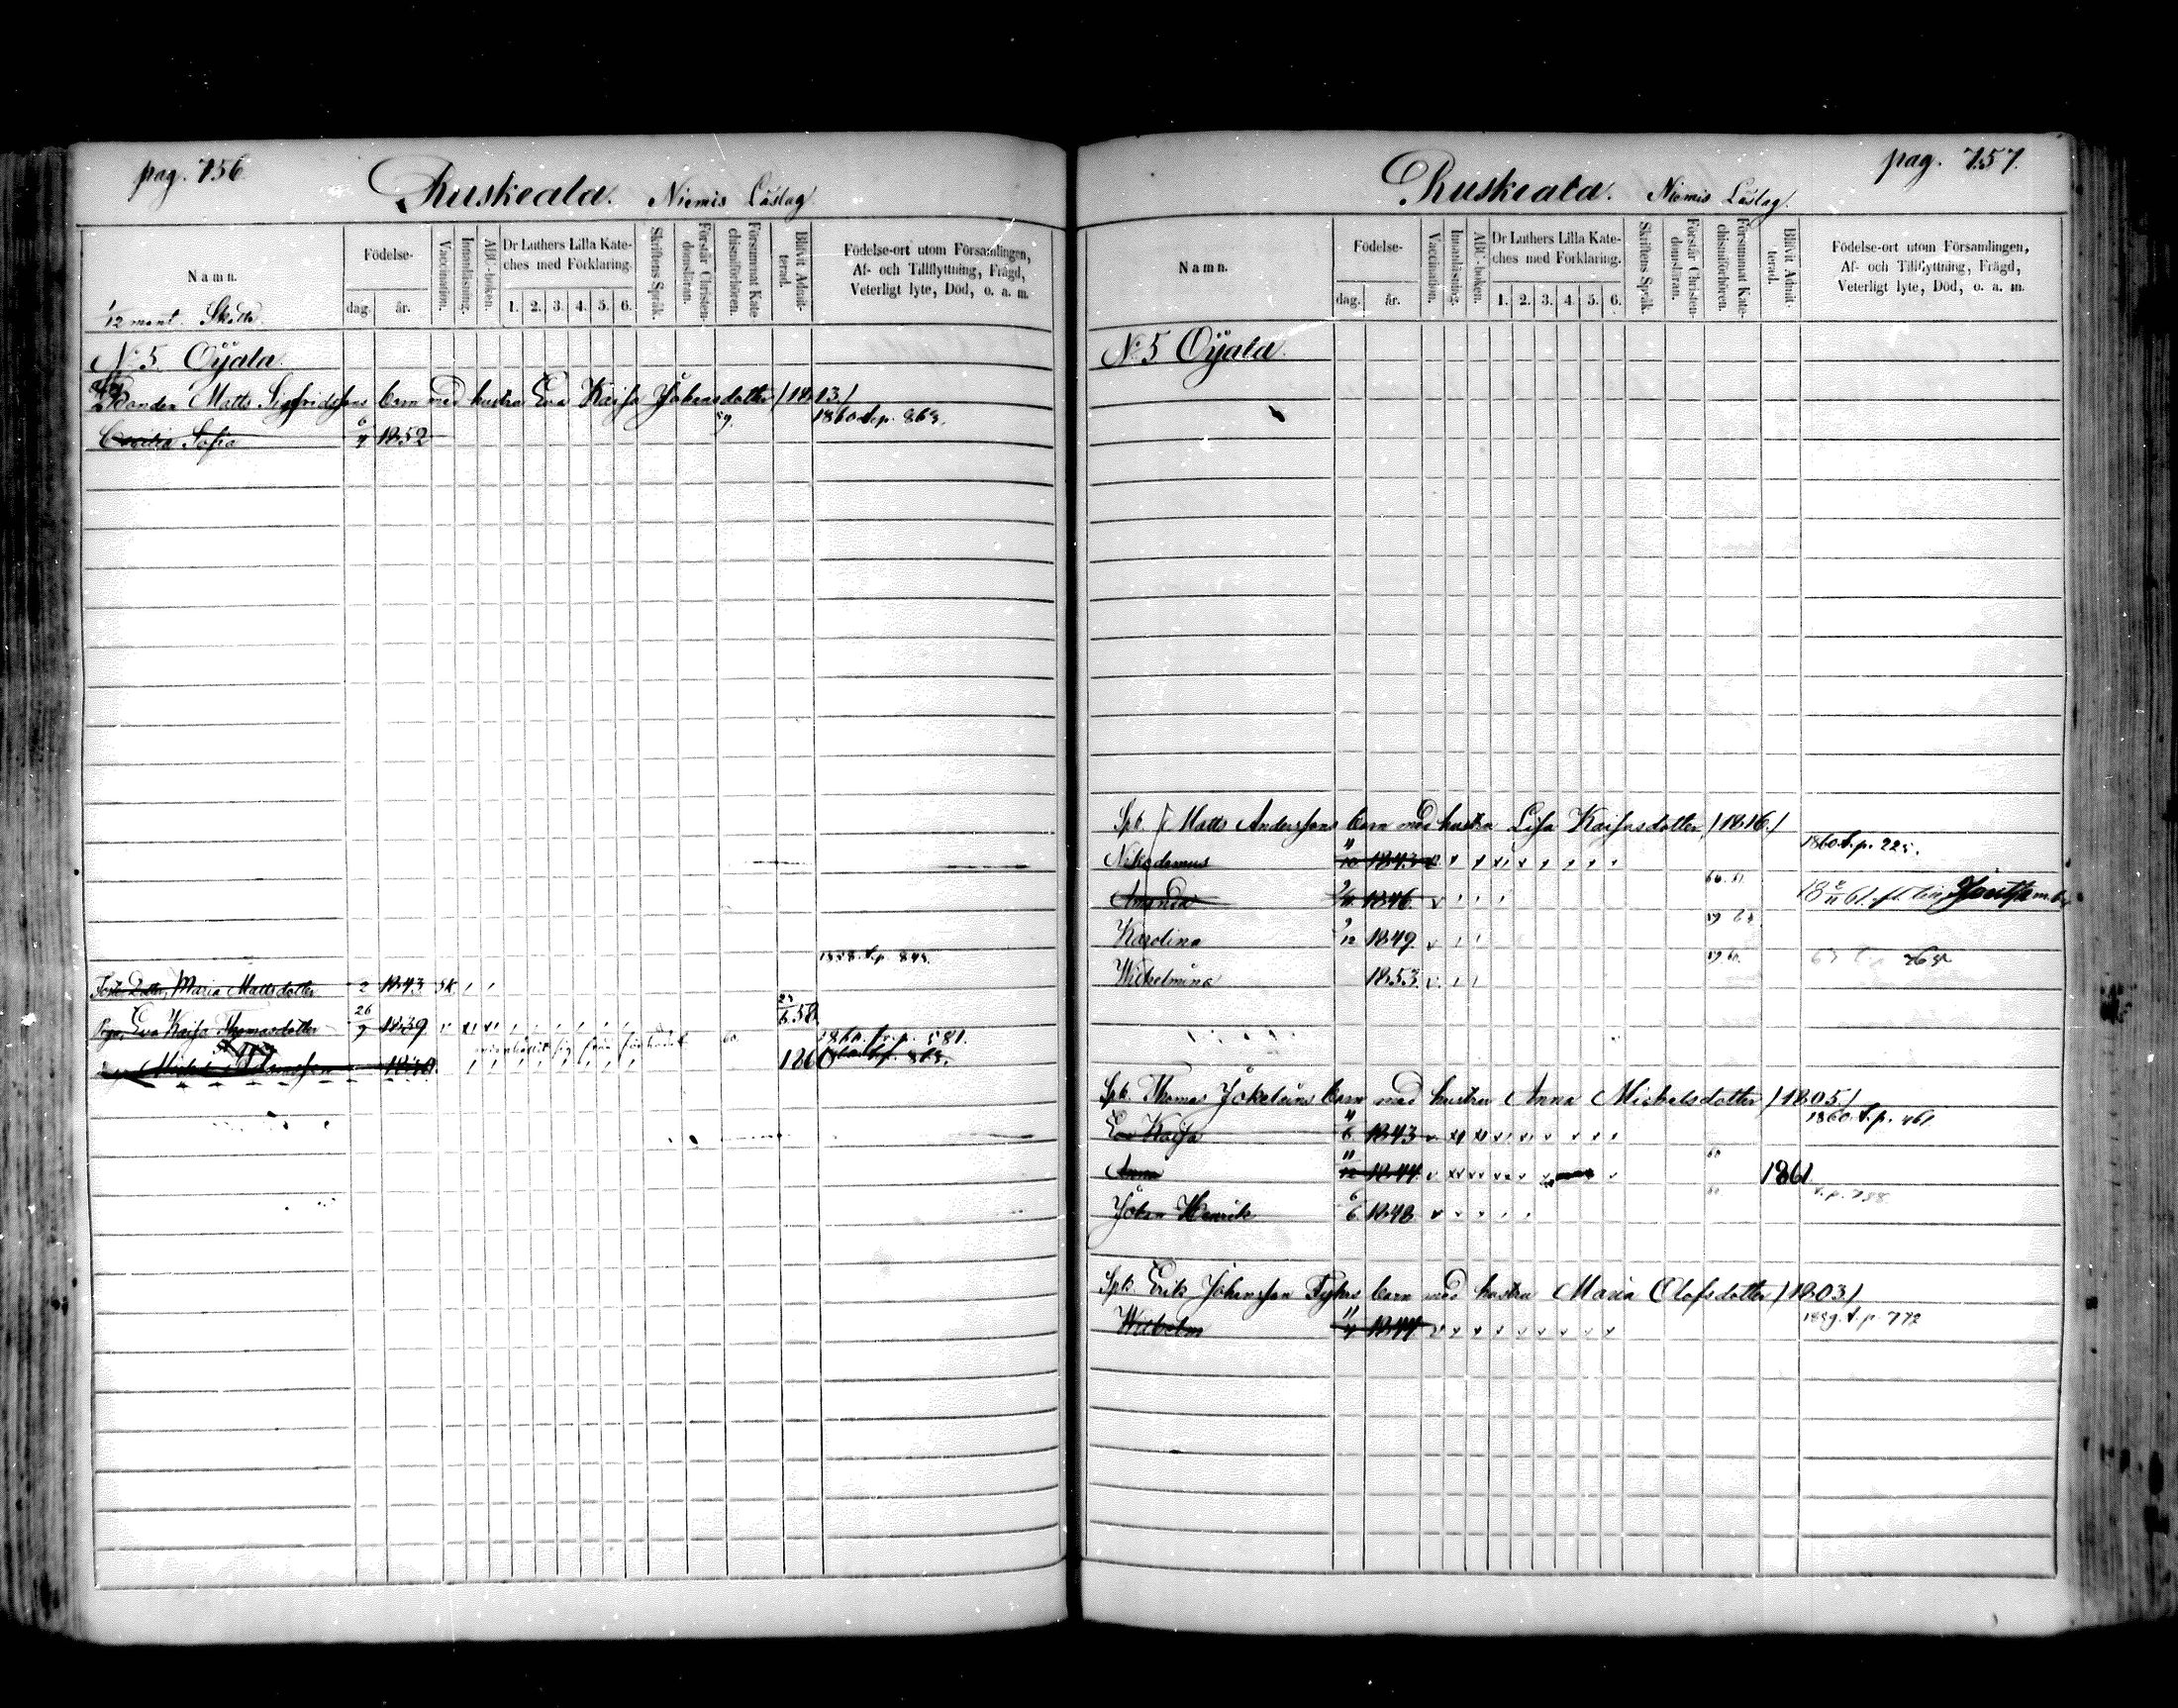 pag. 756
Ruskeala. Niemis Läslag.
Namn.
Födelse-
dag.
år.
Vaccination.
Innanläsning.
ABC-boken.
Dr Luthers Lilla Kate-
ches med Förklaring.
1. 2. 3. 4. 5. 6.
Skriftens Språk.
Förstår Christen-
domsläran.
Försummat Kate-
chismiförhören.
Blifvit Admit-
terad.
Födelse-ort utom Församlingen,
Af- och Tillflyttning, Frägd,
Veterligt lyte, Död, o. a. m.
1/12 mant. Skatte.
N:o 5 Öijala.
Bonden Matts Sigfridssons barn med hustru Eva Kaisa Johansdotter /1813/
59. 1860 t.p. 863.
Cecilia Sofia 6/4 1852
1858. t.p. 843.
Maria Mattsdotter 2 1843 sk.
Pig. Eva Kaisa Thomasdotter 26/9 1839 v 58
60. 1860. fr.p. 581.
1860
pag. 757.
Ruskeala. Niemis Läslag.
Namn.
Födelse-
dag.
år.
Vaccination.
Innanläsning.
ABC-boken.
Dr Luthers Lilla Kate-
ches med Förklaring.
1. 2. 3. 4. 5. 6.
Skriftens Språk.
Förstår Christen-
domsläran.
Försummat Kate-
chismiförhören.
Blifvit Admit-
terad.
Födelse-ort utom Församlingen,
Af- och Tillflyttning, Frägd,
Veterligt lyte, Död, o. a. m.
N:o 5 Öijala.
Spb. Matts Anderssons barn med hustru Lisa Kaisasdotter /1816/
1860. t.p. 225.
Nikodemus 11/10 1843
Amanda 1846
Karolina 9/12 1849
Wilhelmina 1853
Spb. Thomas Jokelains barn med hustru Anna Michelsdotter /1805/
1860. t.p. 461
Eva Kaisa 11/6 1843
60
Anna 11/12 1844 1861
60 t.p. 788
Johan Henrik 6/6 1848
Spb. Erik Johansson Tykes barn med hustru Maria Olofsdotter /1803/
1859. t.p. 772
Wilhelm 11/4 1844